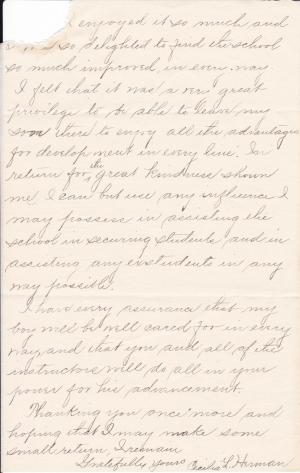 enjoyed it so much and
so delighted to find the school
so much improved in every way.
I felt that it was a very great
privilege to be able to leave my
son there to enjoy all the advantages
for development in every line. In
return for the great kindness shown
me I can but use any influence I
may possess in assisting the
school in securing students and in
assisting any exstudents in any
way possible.
I have every assurance that my
boy will be well cared for in every
way, and that you and all of the
instructors will do all in your
power for his advancement.
Thanking you once more and
hoping that I may make some
small return, I remain
Gratefully yours
Herman